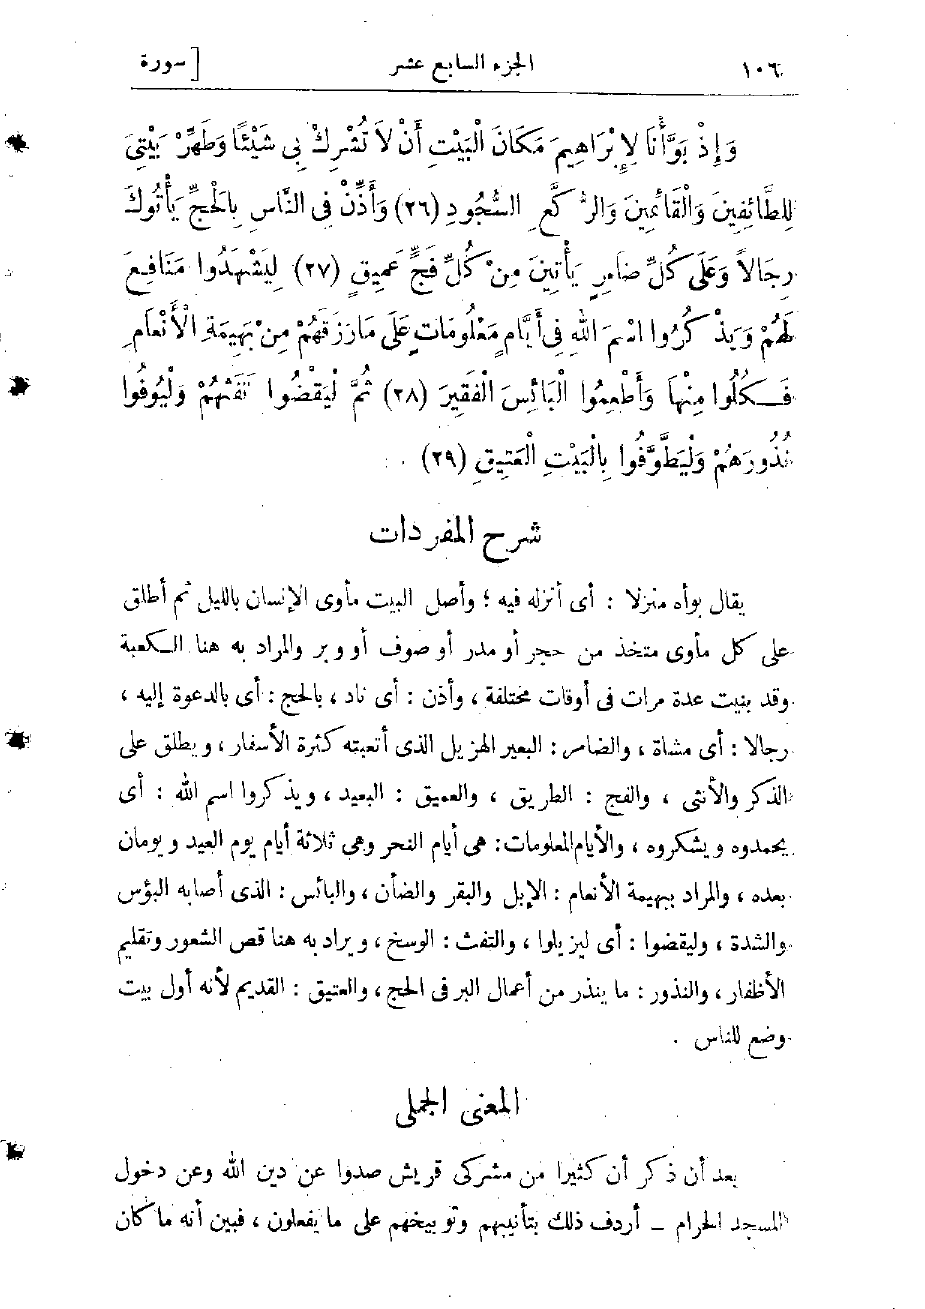 ١٠٦ الجزء السابع عشر [ سورة
وَإِذْ بَوَّأْنَا لِإِبْرَاهِيمَ مَكَانَ الْبَيْتِ أَنْ لَا تُشْرِكْ بِي شَيْئًا وَطَهِّرْ بَيْتِيَ
لِلطَّائِفِينَ وَالْقَائِمِينَ وَالرُّكَّعِ السُّجُودِ (٢٦) وَأَذِّنْ فِي النَّاسِ بِالْحَجِّ يَأْتُوكَ
رِجَالاً وَعَلَى كُلِّ ضَامِرٍ يَأْتِينَ مِنْ كُلِّ فَجٍّ عَمِيقٍ (٢٧) لِيَشْهَدُوا مَنَافِعَ
لَهُمْ وَيَذْكُرُوا اسْمَ اللهِ فِي أَيَّامٍ مَعْلُومَاتٍ عَلَى مَا رَزَقَهُمْ مِنْ بَهِيمَةِ الْأَنْعَامِ
فَكُلُوا مِنْهَا وَأَطْعِمُوا الْبَائِسَ الْفَقِيرَ (٢٨) ثُمَّ لْيَقْضُوا تَفَثَهُمْ وَلْيُوفُوا
نُذُورَهُمْ وَلْيَطَّوَّفُوا بِالْبَيْتِ الْعَتِيقِ (٢٩) .
شرح المفردات
يقال بوأه منزلا : أى أنزله فيه ؛ وأصل البيت مأوى الإنسان بالليل ثم أطلق
على كل مأوى متخذ من حجر أو مدر أو صوف أو وبر والمراد به هنا الكعبة
وقد بنيت عدة مرات فى أوقات مختلفة ، وأذن : أى ناد ، بالحج : أى بالدعوة إليه ،
رجالا : أى مشاة ، والضامر : البعير الهزيل الذى أتعبته كثرة الأسفار ، ويطلق على
الذكر والأنثى ، والفج : الطريق ، والعميق : البعيد ، ويذكروا اسم الله : أى
يحمدوه ويشكروه ، والأيام المعلومات : هى أيام النحر وهى ثلاثة أيام يوم العيد ويومان
بعده ، والمراد ببهيمة الأنعام : الإبل والبقر والضأن ، والبائس : الذى أصابه البؤس
والشدة ، وليقضوا : أى ليزيلوا ، والتفث : الوسخ ، ويراد به هنا قص الشعور وتقليم
الأظفار ، والنذور : ما ينذر من أعمال البر فى الحج ، والعتيق : القديم لأنه أول بيت
وضع للناس .
المعنى الجملى
بعد أن ذكر أن كثيرا من مشركى قريش صدوا عن دين الله وعن دخول
المسجد الحرام – أردف ذلك بتأنيبهم وتوبيخهم على ما يفعلون ، فبين أنه ما كان